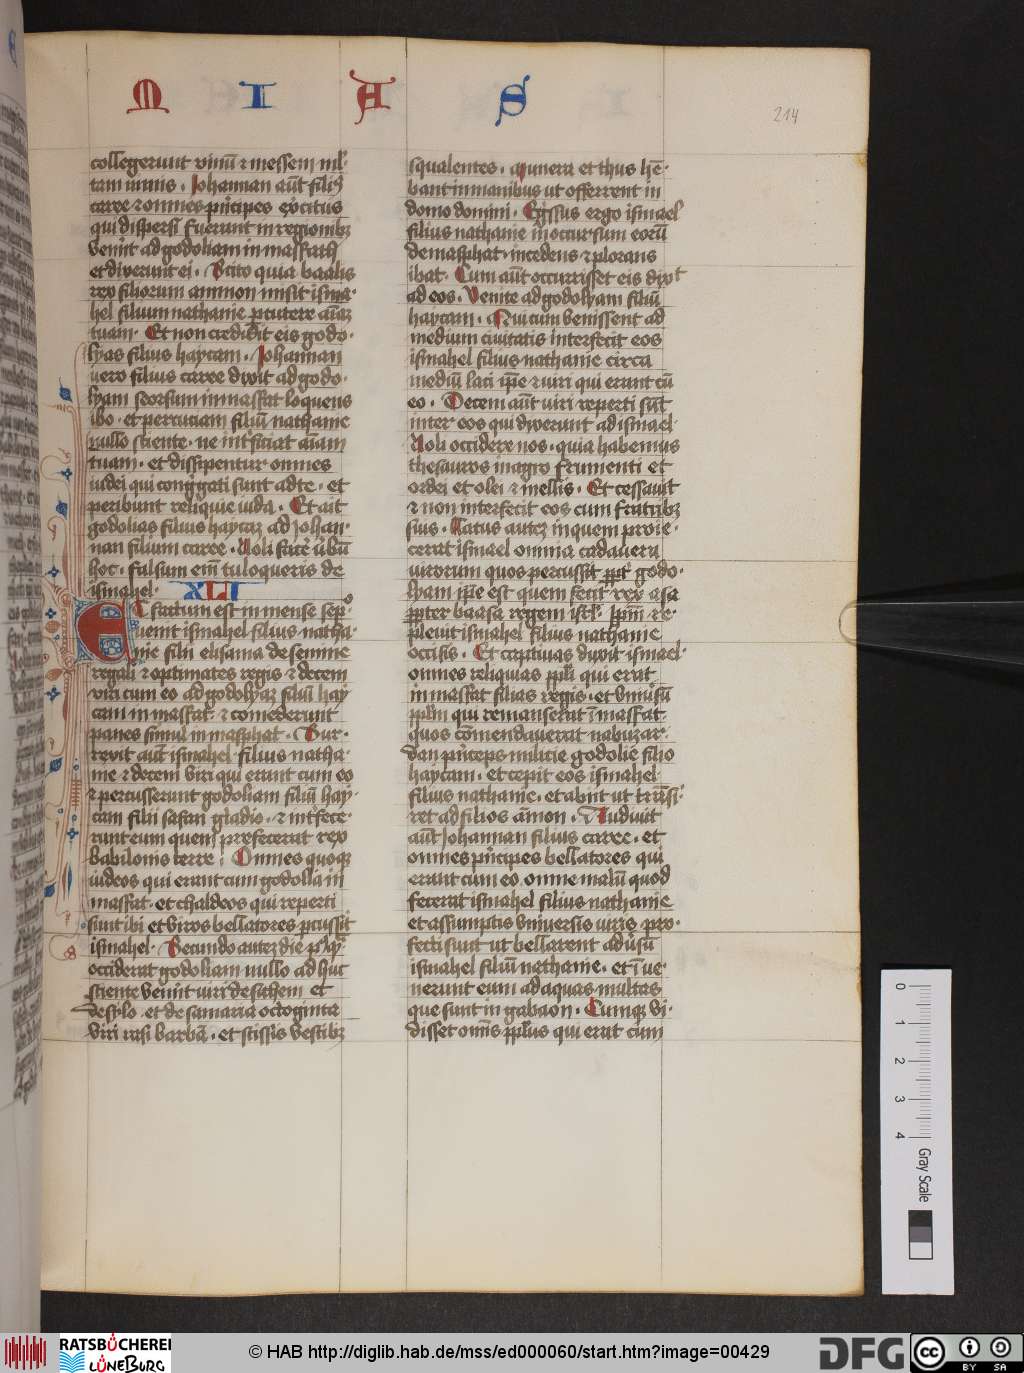 M I A S
214
collegerunt vinū ⁊ messem ml̓
tam nimis . Johannan aūt filiꝰ
caree ⁊ omnes prīcipes exͦcitus
qui dispersi fuerunt in regionibꝫ
venīnt ad godoliam in masfath
et dixerunt ei . Scito quia baalis
rex filiorum ammon misit isma-
hel filium nathanie pcutere aīaꝫ
tuam . Et non credidit eis godo-
lyas filius haycam . Johannan
vero filius caree dixit ad godo-
lyam seorsum in masfat loquens
ibo . et percuciam filiū nathanie
nullo sciente . ne int̓ficiat aīam
tuam . et dissipentur omnes
iudei qui cong̓gati sunt ad te . et
peribunt reliquie iuda . Et ait
godolias filius haycaꝫ ad Johan-
nan filium caree . Noli facͤ v̓bū
hoc . falsum em̄ tu loqueris de
ismahel . XLI
Et factum est in mense sep̓
venit ismahel filius natha-
nie filii elisama de semine
regali ⁊ optimates regis ⁊ decem
viri cum eo ad godolyaꝫ filiū hay
cam in masfat . ⁊ comederunt
panes simul in masphat . Sur-
rexit aūt ismahel filius natha-
nie ⁊ decem viri qui erant cum eo
⁊ percusserunt godoliam filiū hay-
cam filii safan gladio . ⁊ int̓fece-
runt eum quem prefecerat rex
babilonis terre . Omnes quoqꝫ
iudeos qui erant cum godolia in
masfat . et chaldeos qui reperti
sunt ibi et viros bellatores pcussit
ismahel . Secundo auteꝫ die pꝰqͣ
occiderat godoliam nullo adhuc
sciente venīnt viri de sichem et
de sylo . et de samaria octoginta
viri rasi barbā . et scissis vestibꝫ
squalentes . munera et thus hē-
bant in manibus ut offerrent in
domo domini . Egressus ergo ismael
filius nathanie in occursum eorū
de masphat . incedens ⁊ plorans
ibat . Cum aūt occurrisset eis dixͭ
ad eos . Venite ad godolyam filiū
haycam . Qui cum venissent ad
medium ciuitatis interfecit eos
ismahel filius nathanie circa
mediū laci ip̄e ⁊ viri qui erant cū
eo . Decem aūt viri reperti sūt
inter eos qui dixerunt ad ismael
Noli occidere nos . quia habemus
thesauros in agro frumenti et
ordei et olei ⁊ mellis . Et cessauit
⁊ non interfecit eos cum fratribꝫ
suis . Lacus auteꝫ in quem proie-
cerat ismael omnia cadauera
virorum quos percussit ppt̓ godo-
lyam ip̄e est quem fecit rex asa
ppter baasa regem isrl̓ . Ip̄m re-
pleuit ismahel filius nathanie
occisis . Et captiuas duxit ismael
omnes reliquias ppl̓i qui erāt
in masfat filias regis . et vniūsū
ppl̓m qui remanserāt ī masfat .
quos cōmendauerat nabuzar-
dan prīceps milicie godolie filio
haycam . et cepit eos ismahel
filius nathanie . et abiit ut trāsi-
ret ad filios āmon . Audiuit
aūt Johannan filius caree . et
omnes prīcipes bellatores qui
erant cum eo omne malū quod
fecerat ismahel filius nathanie
et assumptis vniuersis viris pro-
fecti sunt ut bellarent ad̓usū
ismahel filiū nathanie . et īue-
nerunt eum ad aquas multas
que sunt in gabaon . Cumqꝫ vi-
disset om̄is ppl̓us qui erat cum
0 1 2 3 4
Gray Scale
RATSBÜCHEREI
LÜNEBURG
© HAB http://diglib.hab.de/mss/ed000060/start.htm?image=00429
DFG
cc BY SA